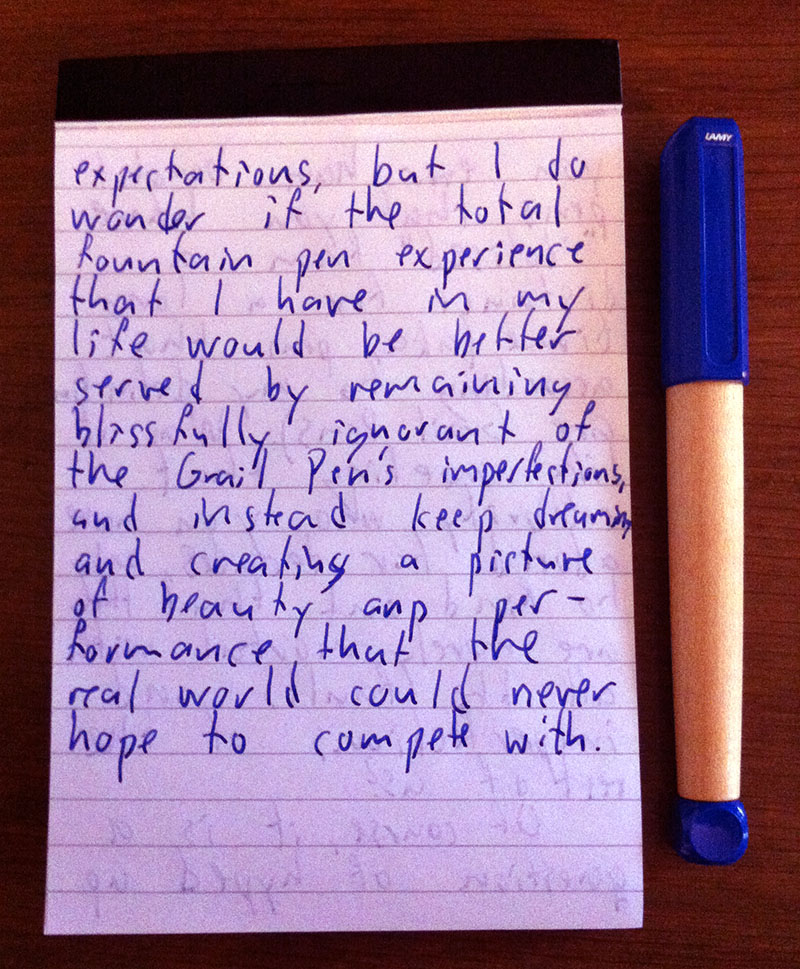 expectations, but I do
wonder if the total
fountain pen experience
that I have in my
life would be better
served by remaining
blissfully ignorant of
the Grail Pen's imperfections,
and instead keep dreaming
and creating a picture
of beauty and per-
formance that the
real world could never
hope to compete with.
LAMY